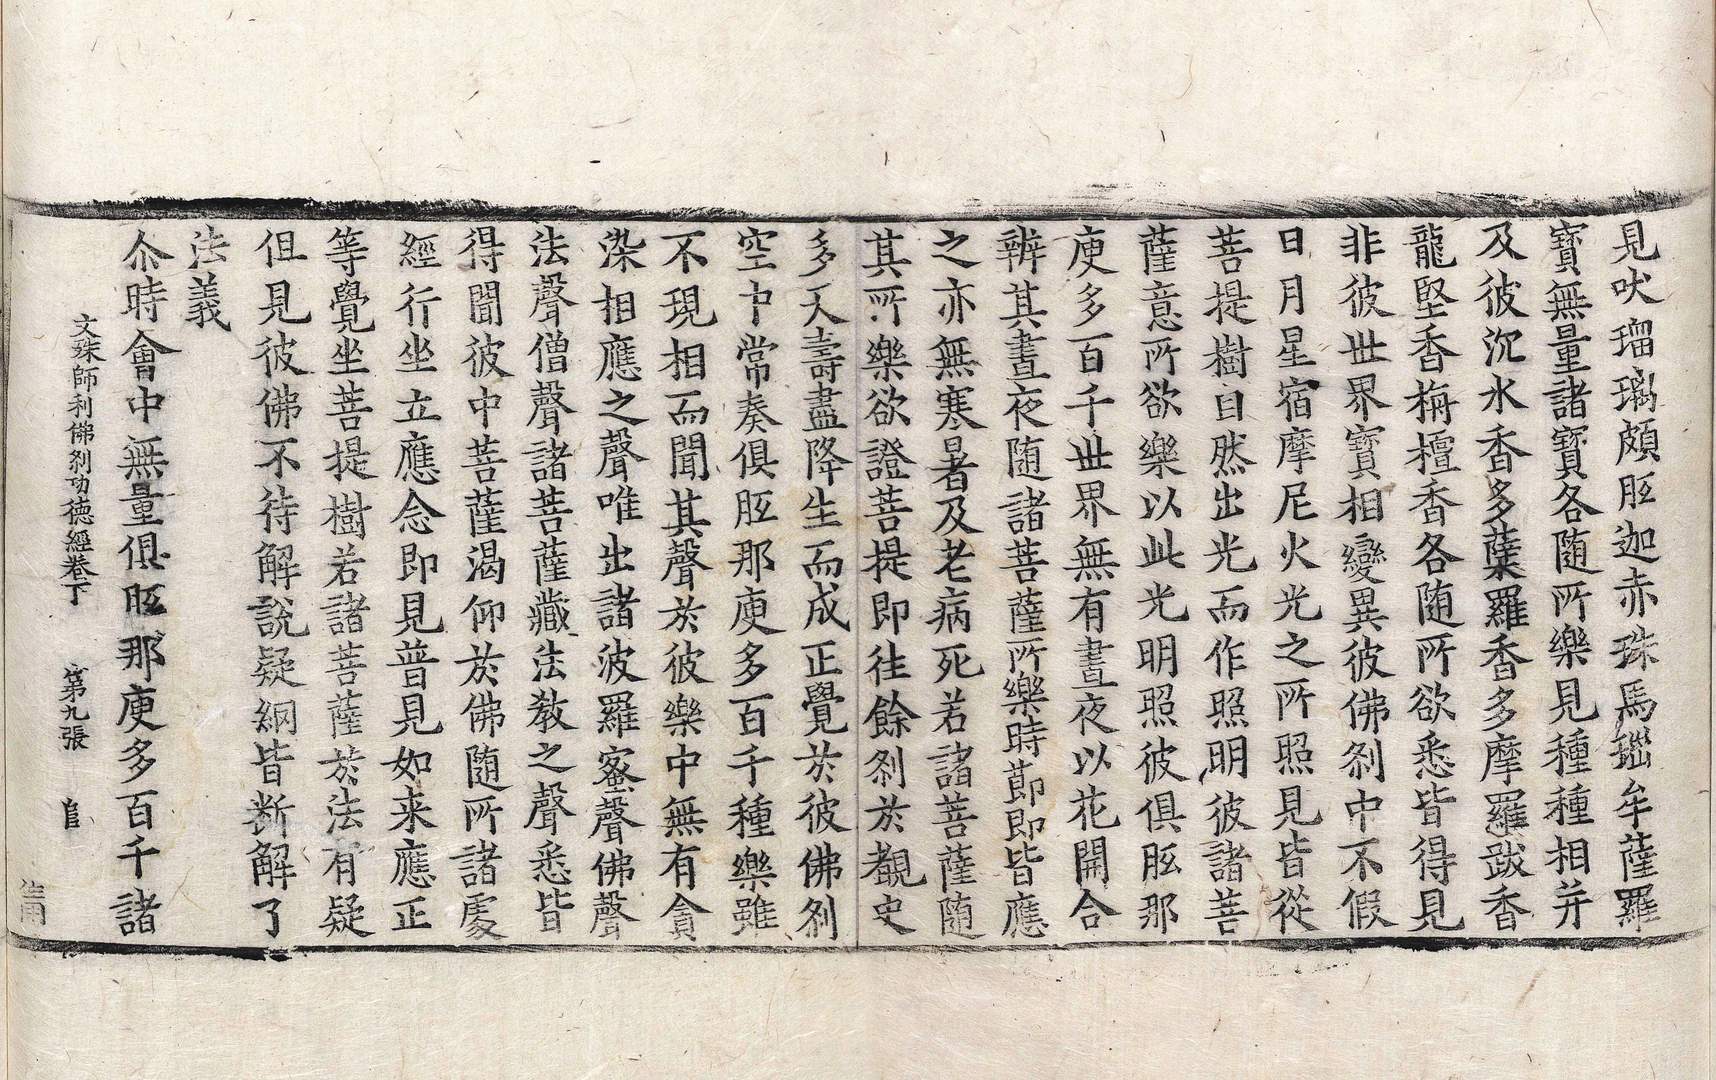 見吠瑠璃頗胝迦赤珠馬瑙牟薩羅
寶無量諸寶各随所樂見種種相并
及彼沉水香多蘖羅香多摩羅跋香
龍堅香栴檀香各随所欲悉皆得見
非彼世界寶相變異彼佛刹中不假
日月星宿摩尼火光之所照見皆從
菩提樹自然出光而作照明彼諸菩
薩意所欲樂以此光明照彼俱胝那
庾多百千世界無有晝夜以花開合
辨其晝夜随諸菩薩所樂時節即皆應
之亦無寒暑及老病死若諸菩薩随
其所樂欲證菩提即往餘刹於覩史
多天壽盡降生而成正覺於彼佛刹
空中常奏俱胝那庾多百千種樂雖
不現相而聞其聲於彼樂中無有貪
染相應之聲唯出諸波羅蜜聲佛聲
法聲僧聲諸菩薩藏法教之聲悉皆
得聞彼中菩薩渴仰於佛随所諸處
經行坐立應念即見普見如来應正
等覺坐菩提樹若諸菩薩於法有疑
但見彼佛不待解說疑網皆断解了
法義
尒時會中無量俱胝那庾多百千諸
文殊師利佛刹功德經卷下 第九張